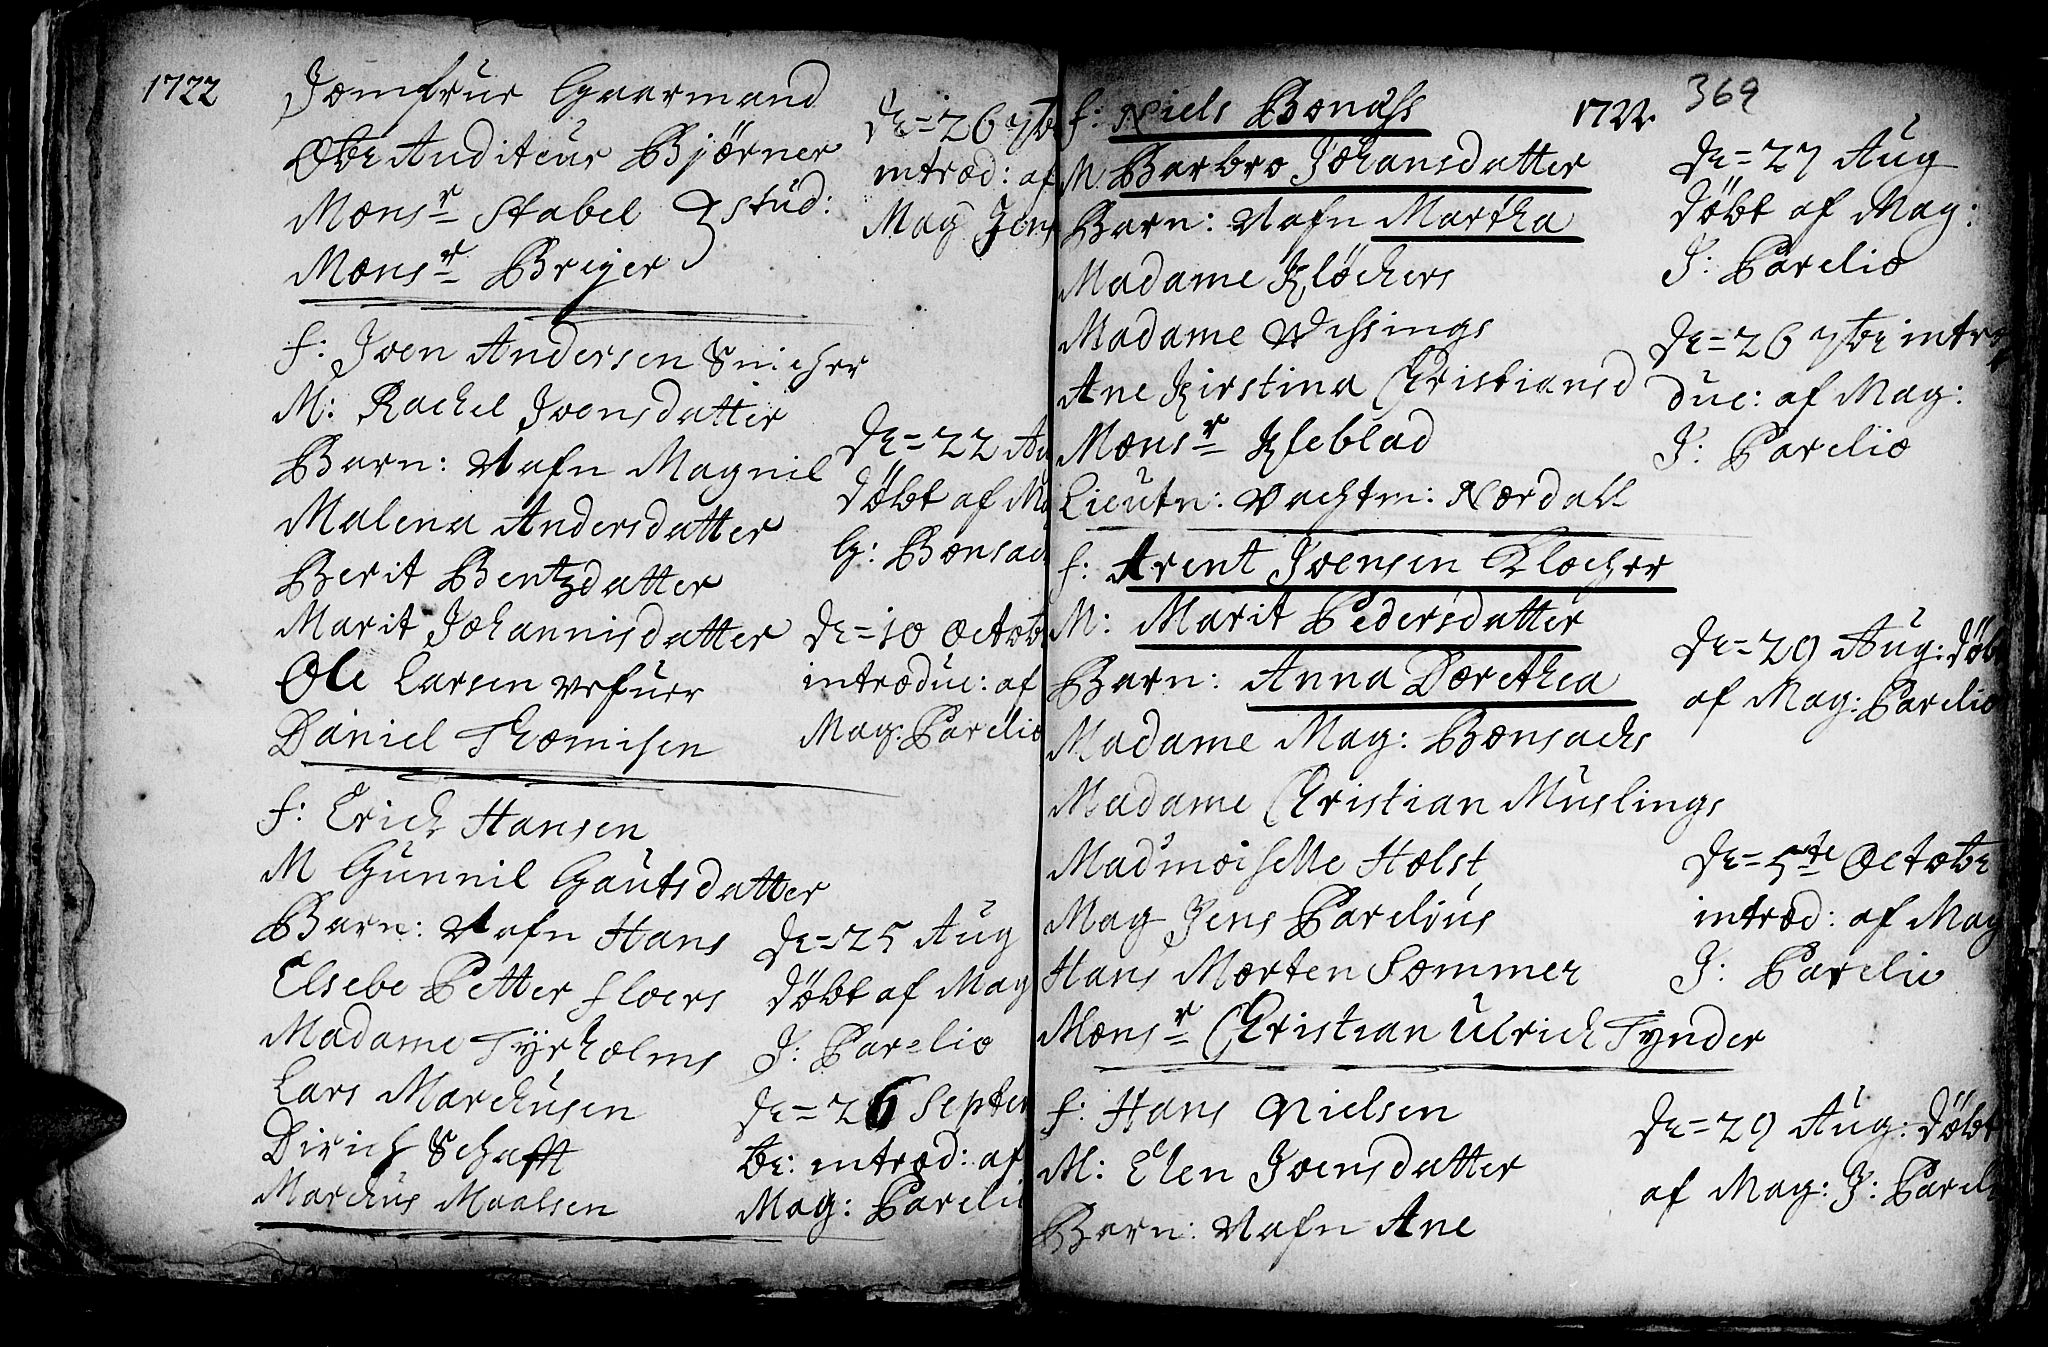 1722
Jomfrue Gaarmand
Obr Auditeur Bjørner
Monsr Stabel } stud:
Monsr Brejer
dn=26 7br
introd: af
Mag Jens
F: Iven Andersen Snicher
M: Rachel Ivensdatter
Barn: Nafn Magnil
Malena Andersdatter
Berit Bentzdatter
Marit Johannisdatter
Ole Larsen
Daniel Thomisen
dn=22 Au
døbt af Ma
G: Bonsac
dn=10 Octob
introduc: af
Mag: Parelio
F: Erich Hansen
M Gunnil Gautsdatter
Barn: Nafn Hans
Elsebe Petter Floers
Madame Tyrholms
Lars Marchusen
Dirich Schafft
Marchus Maalsen
dn=25 Aug
døbt af Mag
J: Parelio
dn=26 Septem
br: introd: af
Mag: Pareli
369
1722
F: Niels Bonass
M. Barbro Johansdatter
Barn: Nafn Martha
Madame Kløchers
Madame Wissings
Ane Kirstina Christiansd
Monsr Kleblad
Lieutn: Vachtm: Nordall
dn=27 Aug
døbt af Mag:
J: Parelio
dn=26 7br intro
duc: af Mag:
J: Parelio
F: Arent Ivensen Klocher
M: Marit Pedersdatter
Barn: Anna Dorethea
Madame Mag: Bonsachs
Madame Christian Muslings
Madmoiselle Holst
Mag Jens Parelius
Hans Morten Sommer
Monsr Christian Ulrich Tynder
dn=29 Aug: døb
af Mag: Parelio
dn=5te Octobr
introd: af Mag
J: Parelio
F: Hans Nielsen
M: Elen Ivensdatter
Barn: Nafn Ane
dn=29 Aug: døbt
af Mag: J: Pareli